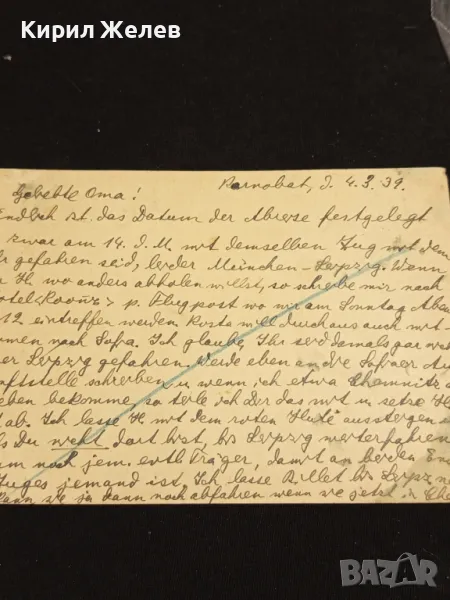 Кирил Желев
Karnobat, d. 4.3.39.
Geliebte Oma!
Endlich ist das Datum der Abreise festgelegt
zwar am 14. d. M. mit demselben Zug mit dem
gefahren seid, leider München-Leipzig. Wenn
H. wo anders abholen willst, so schreibe mir nach
p. Flugpost wo wir am Sonntag
12 eintreffen werden will durchaus auch mit
nach Sofia. Ich glaube, Ihr seid damals gar
Leipzig gefahren. werde eben an die Sofiaer
schreiben u wenn ich etwa Chemnitz
bekomme, so teile ich Dir das mit u setze H
ab. Ich lasse H mit dem roten Hute aussteigen
Du nicht dort bist, bis Leipzig weiterfahren
noch jem. evtl Träger, damit an beiden
Zuges jemand ist. Ich lasse Billet bis Leipz
sie ja dann noch abfahren wenn sie jetzt in
BAZAR